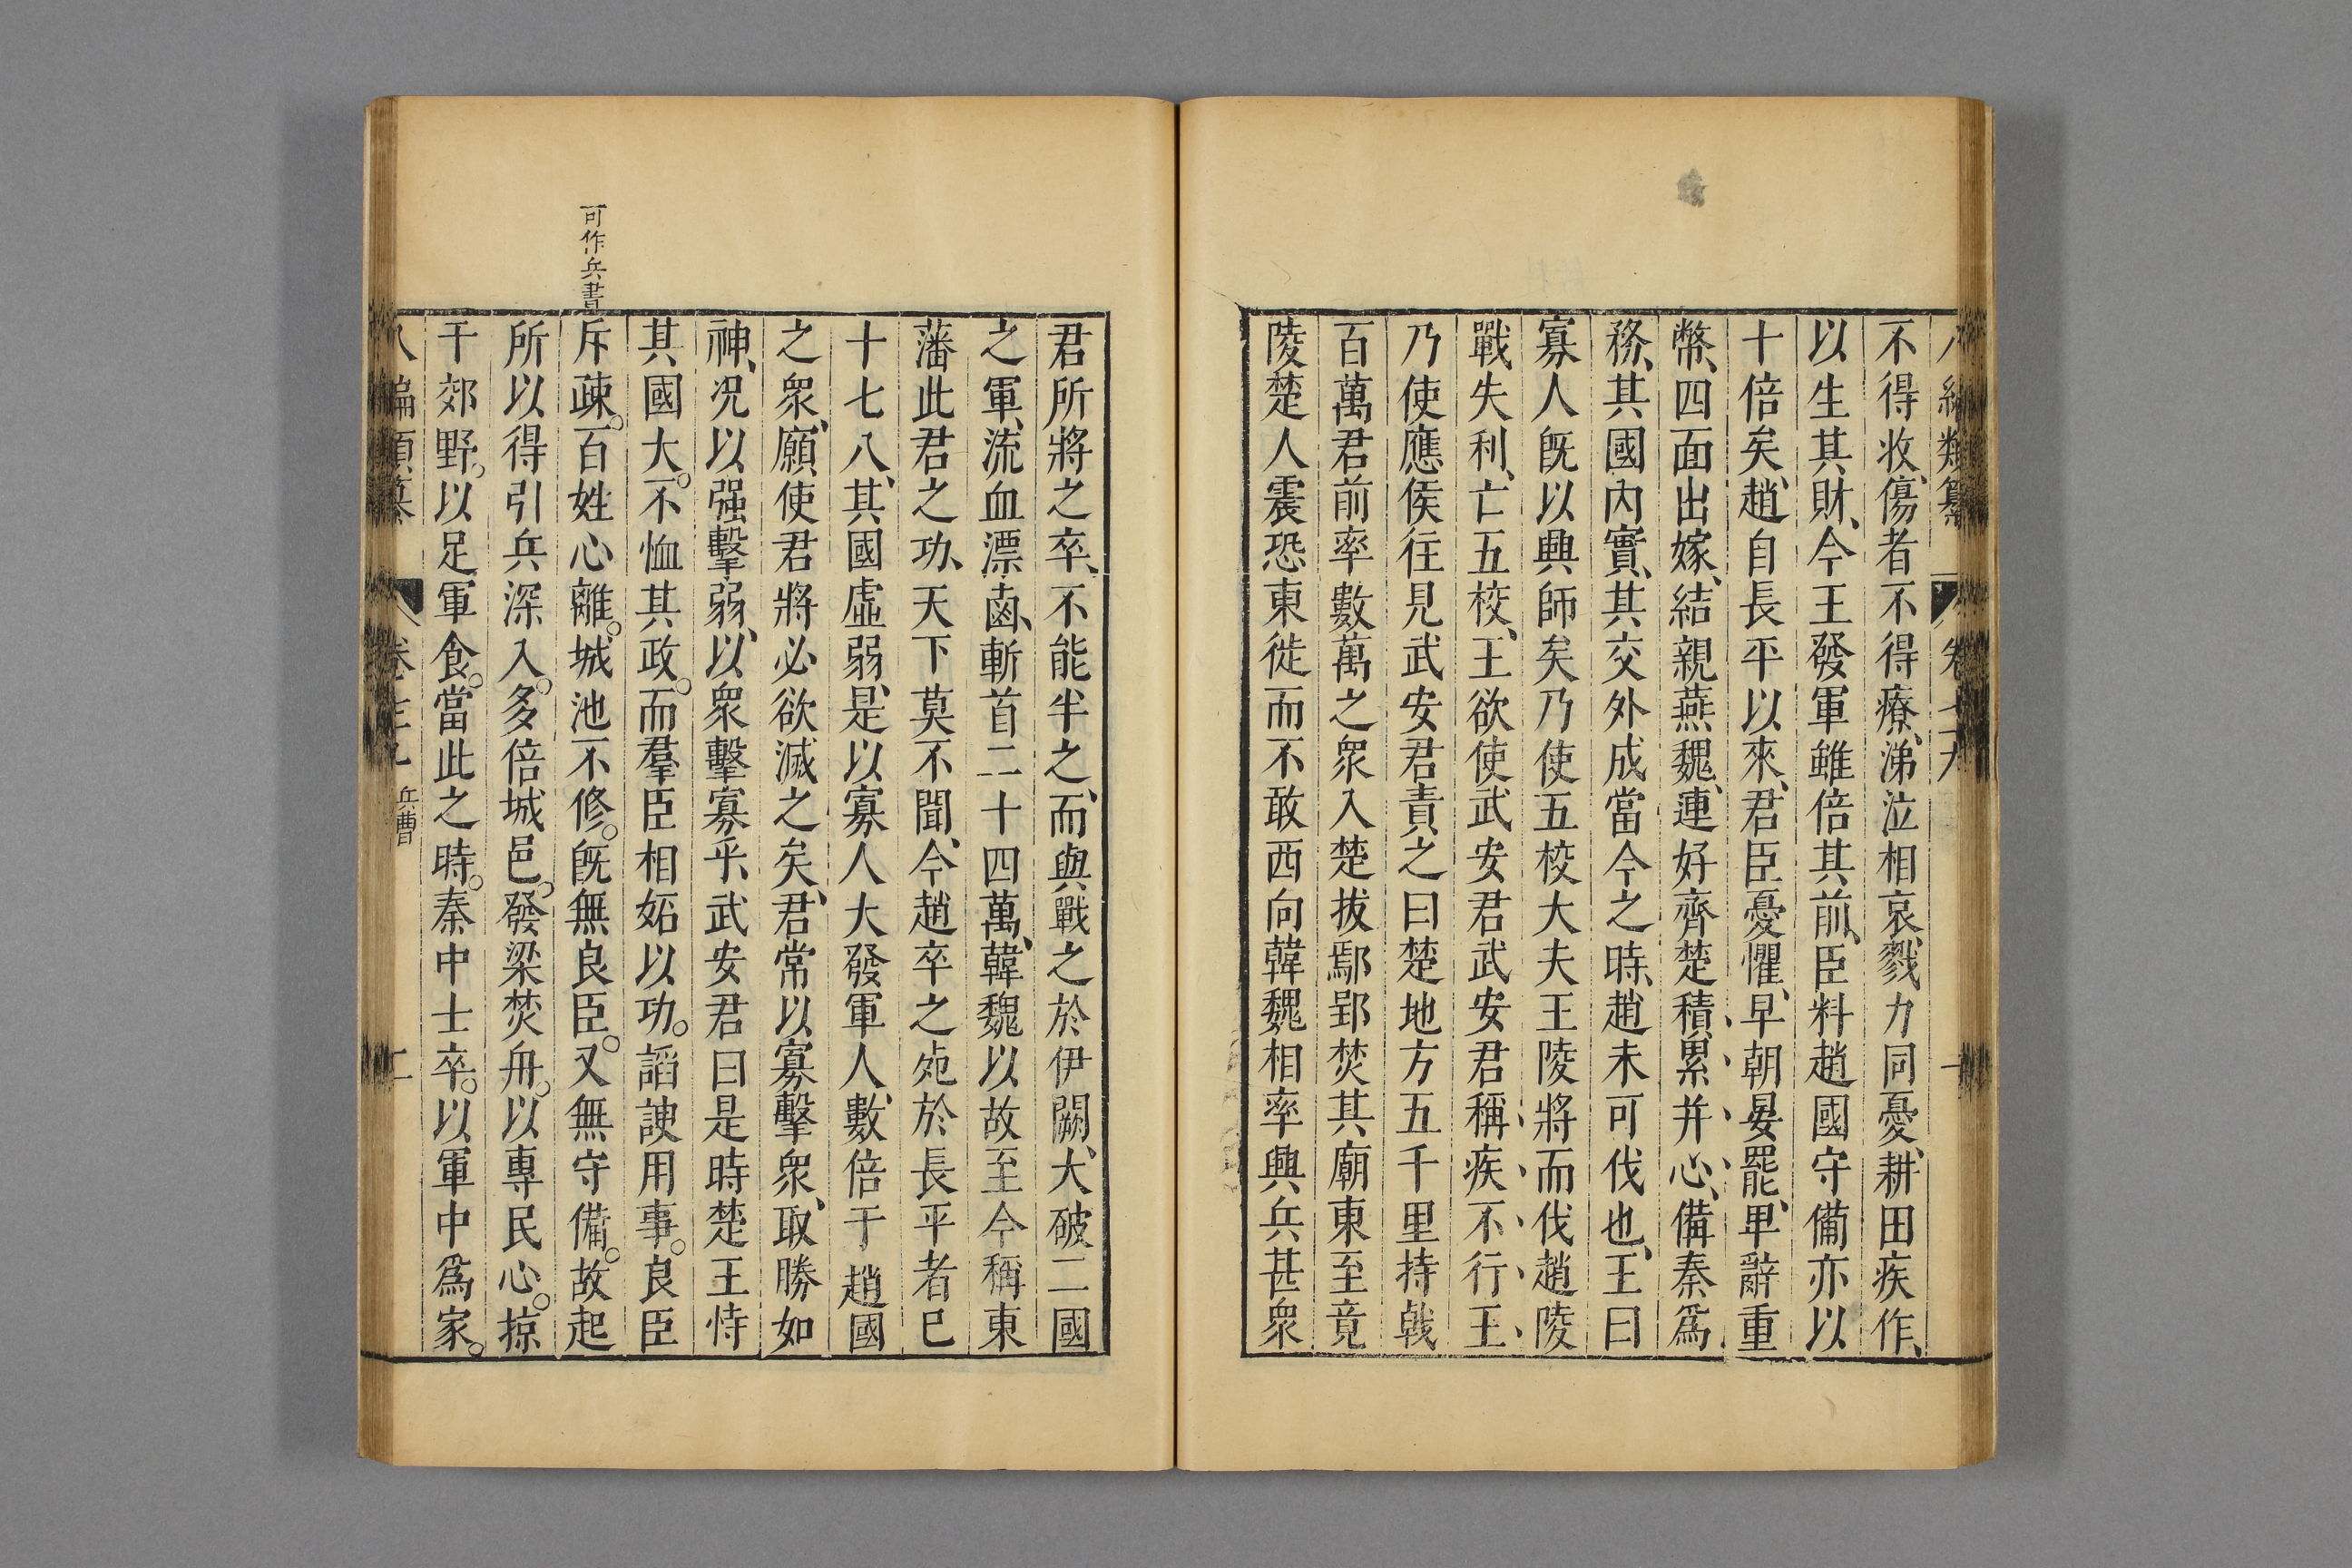 類纂 卷
不得收、傷者不得療、涕泣相哀、戮力同憂、耕田疾作、
以生其財、今王發軍雖倍其前、臣料趙國守備亦以
十倍矣、趙自長平以來、君臣憂懼、早朝晏罷、卑辭重
幣、四面出嫁、結親燕魏、連好齊楚、積累并心、備秦爲
務、其國內實、其交外成、當今之時、趙未可伐也、王曰
寡人旣以興師矣乃使五校大夫王陵將而伐趙陵
戰失利、亡五校、王欲使武安君武安君稱疾不行、王
乃使應侯往見武安君責之曰楚地方五千里持戟
百萬君前率數萬之眾入楚拔鄢郢焚其廟東至竟
陵楚人震恐東徙而不敢西向韓魏相率興兵甚眾
君所將之卒、不能半之、而與戰之於伊闕、大破二國
之軍、流血漂鹵、斬首二十四萬、韓魏以故至今稱東
藩此君之功、天下莫不聞、今趙卒之死於長平者巳
十七八、其國虛弱、是以寡人大發軍人、數倍于趙國
之眾、願使君將必欲滅之矣、君常以寡擊眾、取勝如
神、况以强擊弱、以眾擊寡乎、武安君曰是時楚王恃
其國大。不恤其政。而羣臣相妬以功。謟諛用事。良臣
可作兵書
斥疎。百姓心離。城池不修。旣無良臣。又無守備。故起
所以得引兵深入。多倍城邑。發梁焚舟。以專民心。掠
干郊野。以足軍食。當此之時。秦中士卒。以軍中爲家。
八編類纂 卷 兵曹